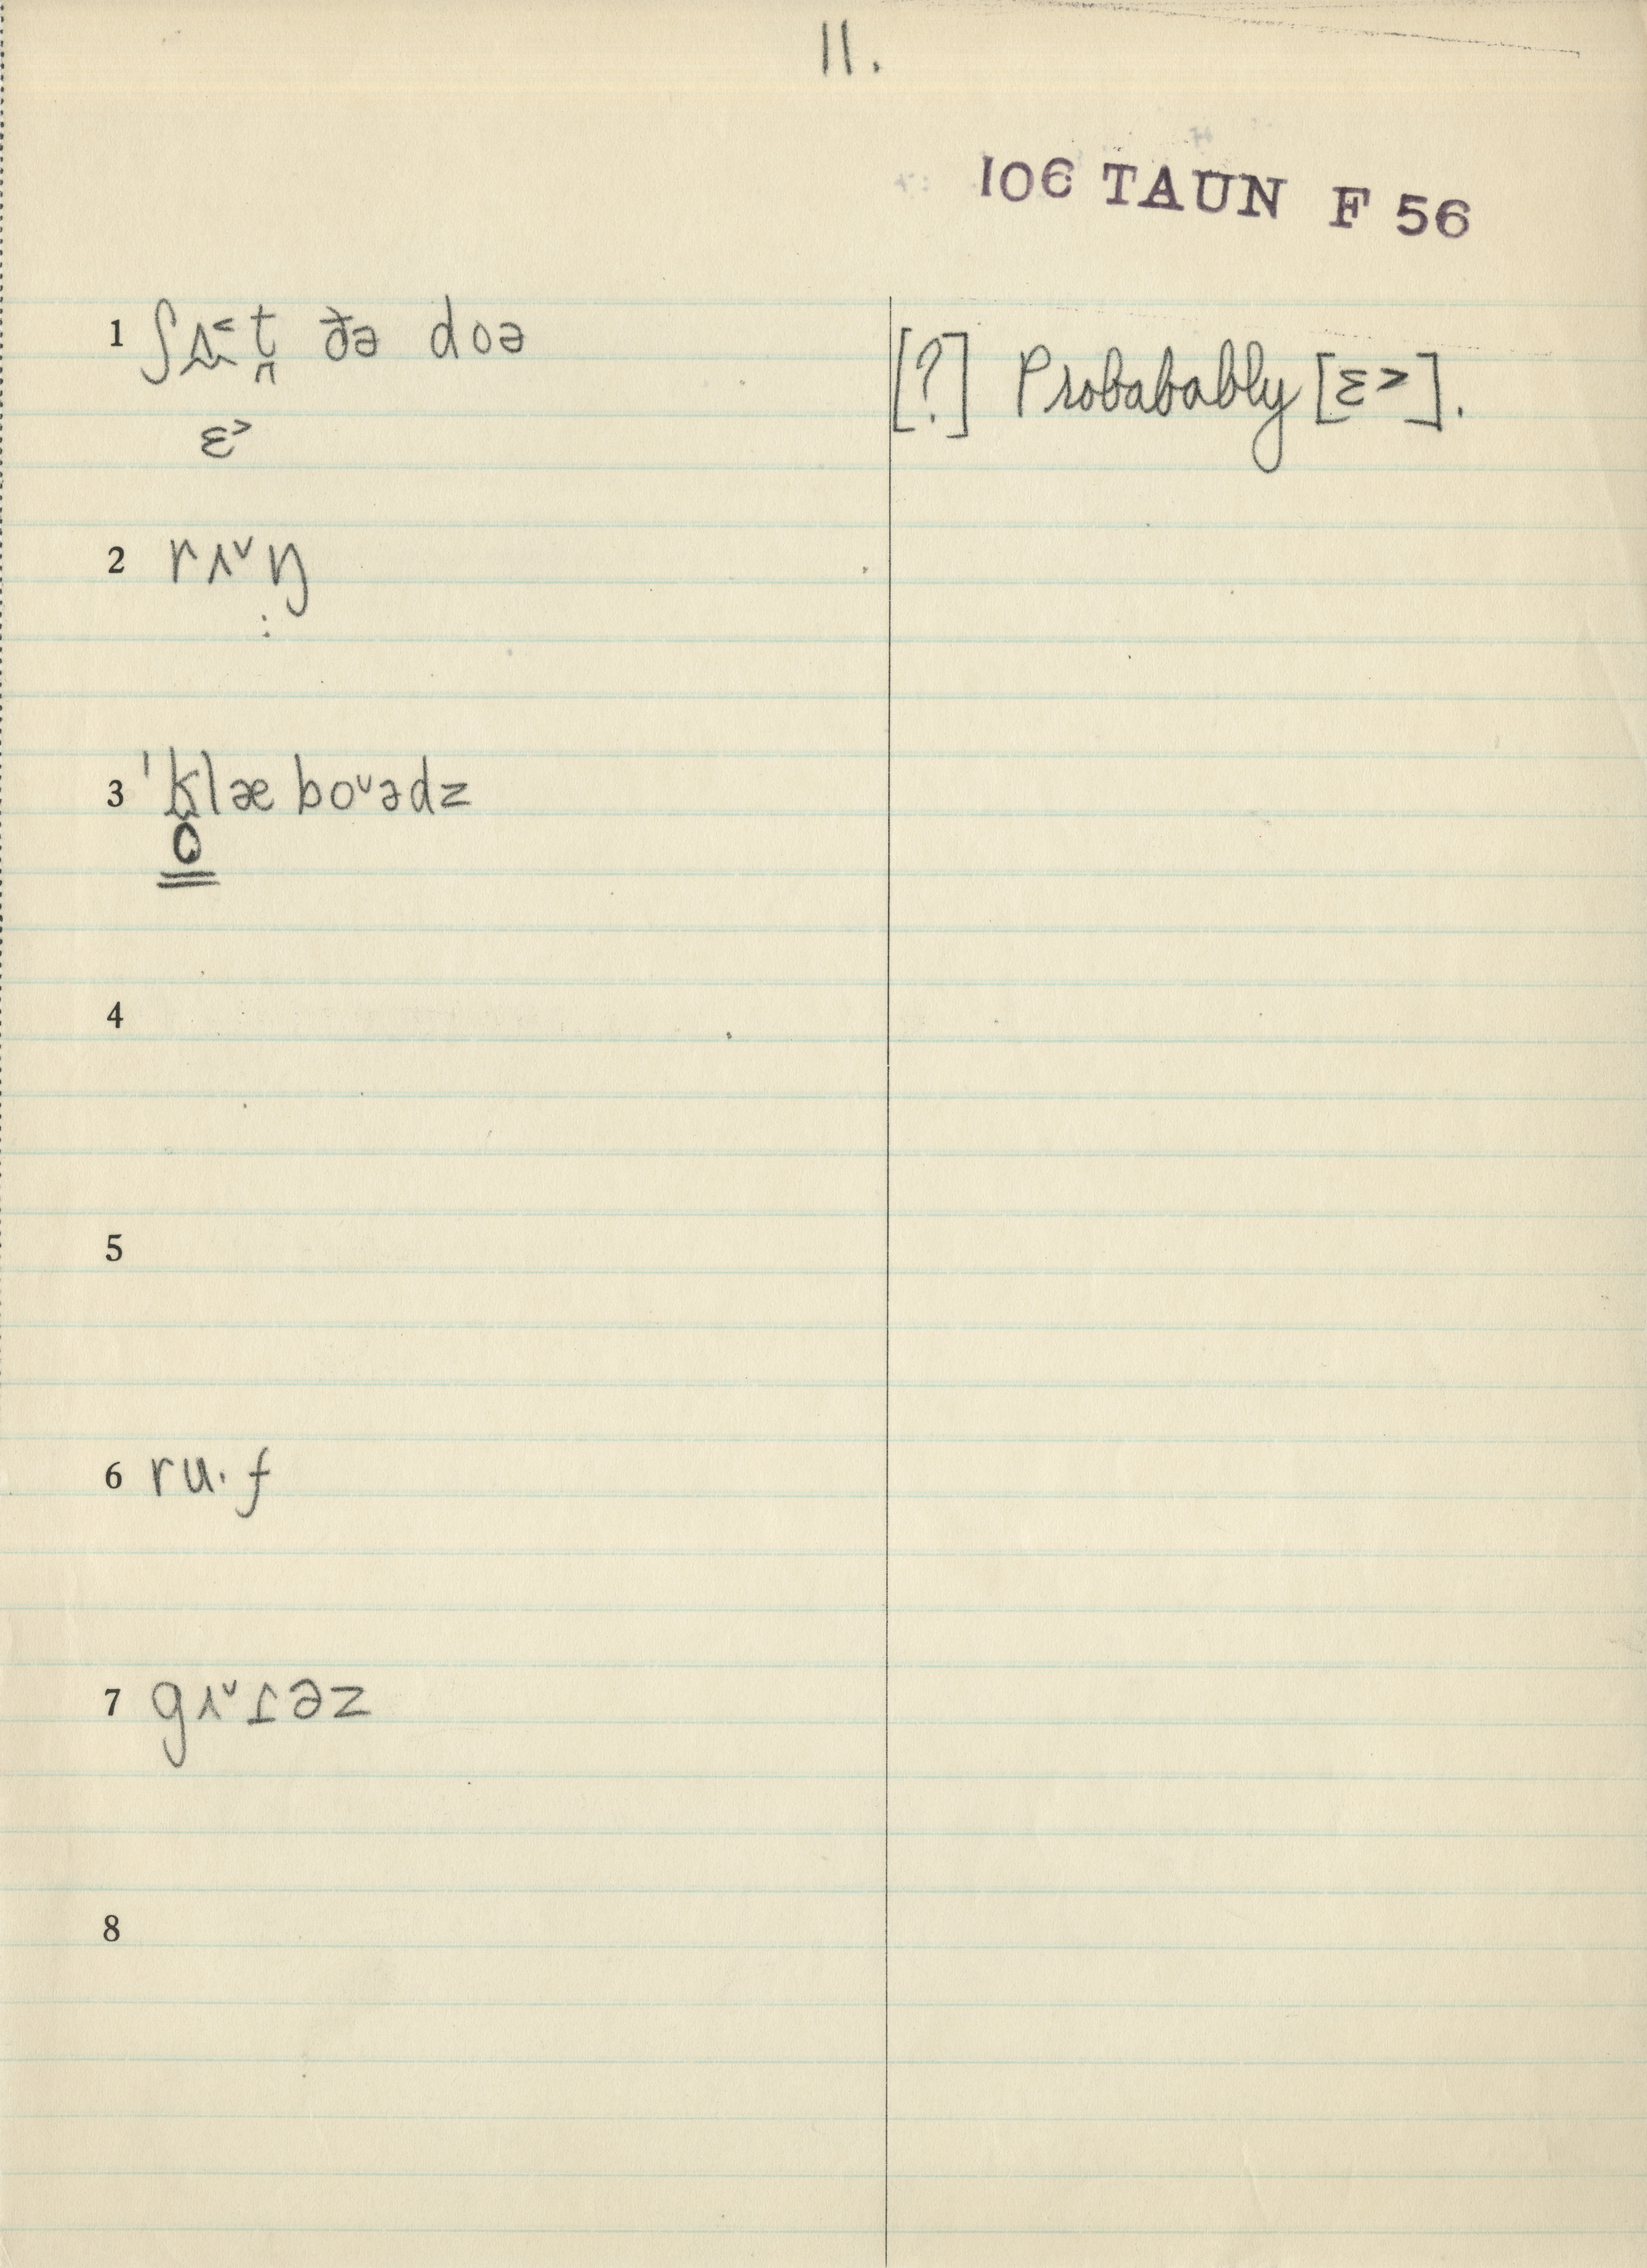 11.
106 TAUN F 56
1 ʃɪ˂t̪ ðə doə
ɛ˃
[?] Probabably [ɛ˃].
2 rɪ˅ŋ
:
3 ˈklæ bo˅ədz
o
4
5
6 ru·f
7 gɪ˅ɾəz
8